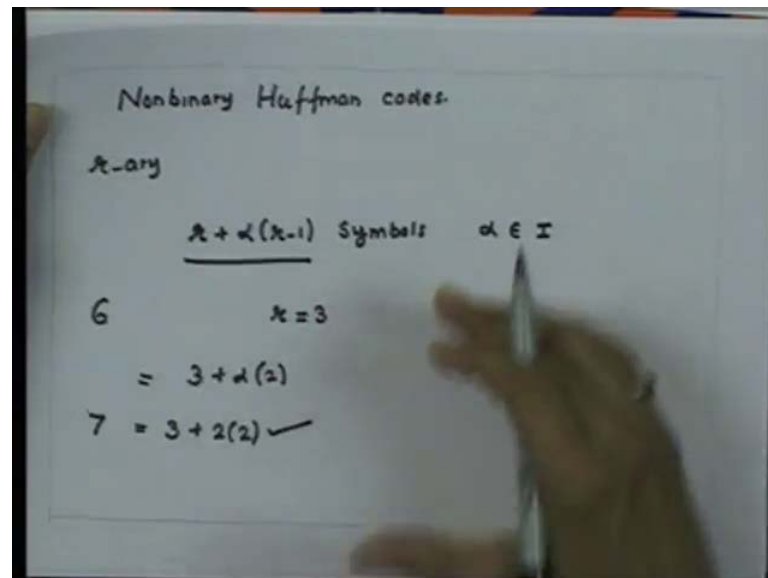 Nonbinary Huffman codes.
r-ary
r + α(r-1) Symbols α ∈ I
6 r = 3
= 3 + α(2)
7 = 3 + 2(2) ✓